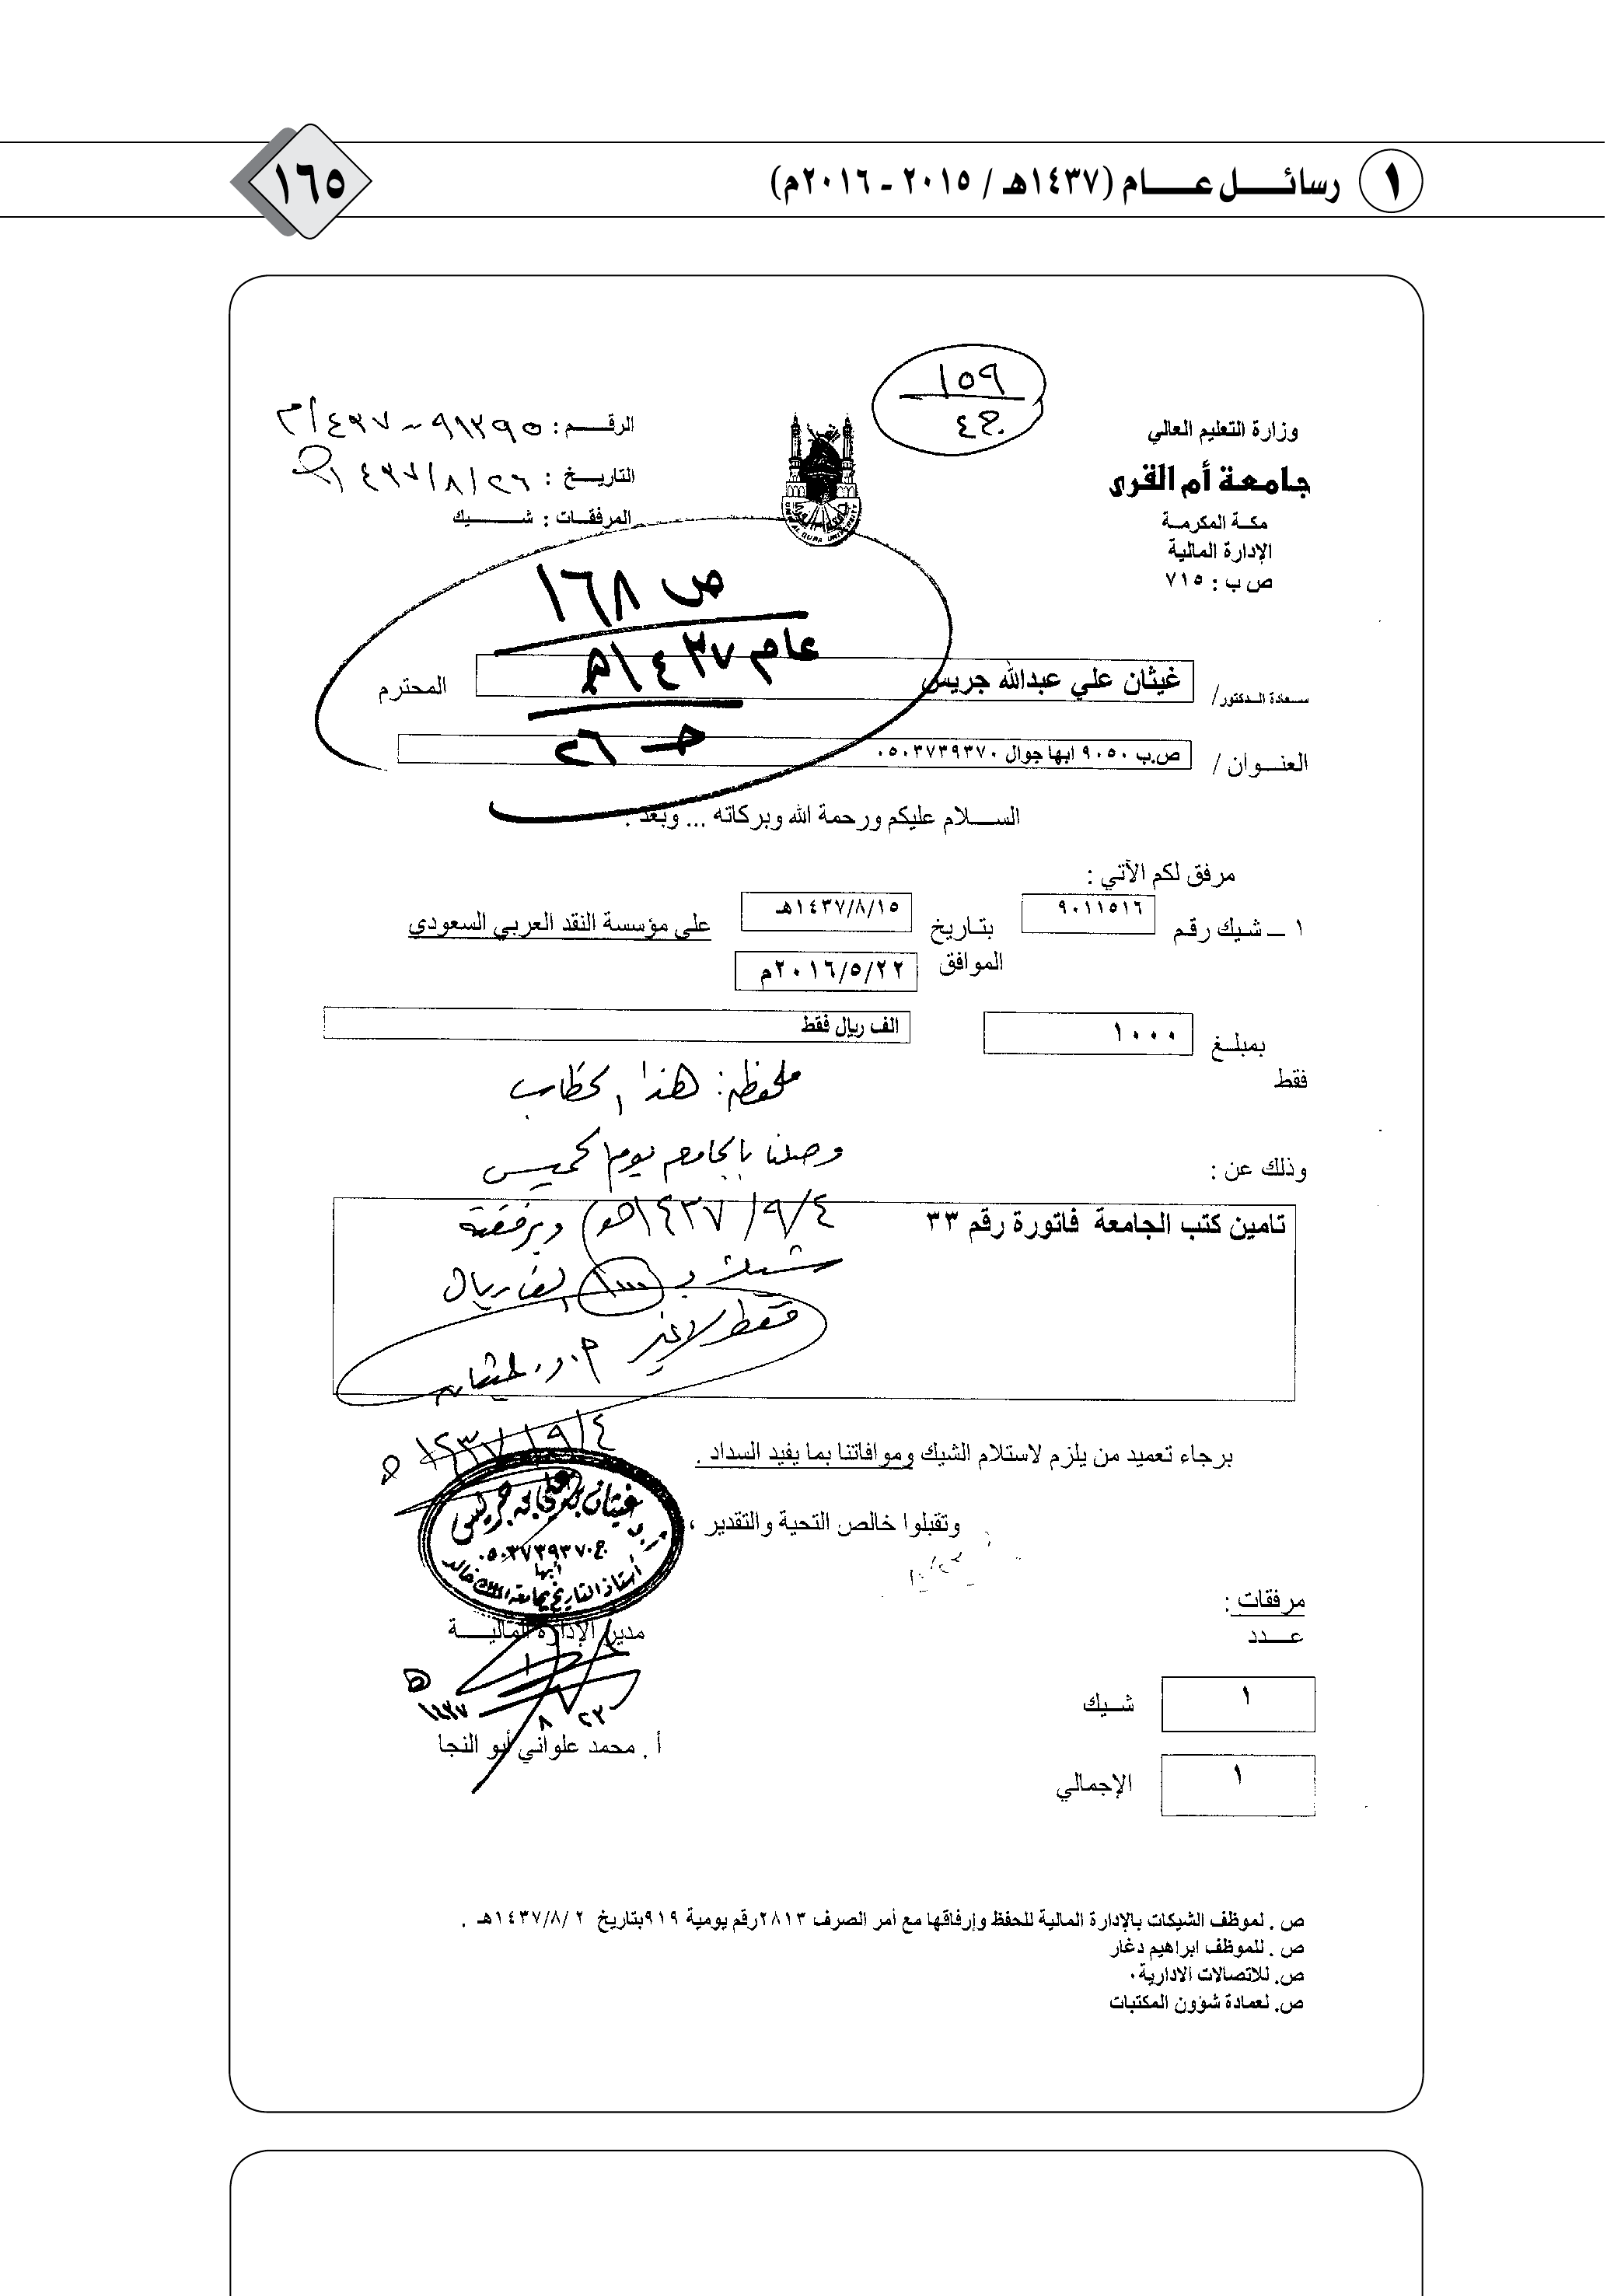 ١ رسائل عام (١٤٣٧هـ / ٢٠١٥ - ٢٠١٦م)
١٦٥
١٥٩
ج٤
وزارة التعليم العالي
جامعة أم القرى
مكة المكرمة
الإدارة المالية
ص ب : ٧١٥
الرقم :
التاريخ : ١٤٣٧/٨/٢٦
المرفقات : شيك
ص ١٦٨
عام ١٤٣٧هـ
جـ ٢٦
سعادة الدكتور/ غيثان علي عبدالله جريس المحترم
العنوان / ص.ب ٩٠٥٠ ابها جوال ٠٥٠٣٧٣٩٣٧٠
السلام عليكم ورحمة الله وبركاته ... وبعد .
مرفق لكم الآتي :
١ – شيك رقم ٩٠١١٥١٦ بتاريخ ١٤٣٧/٨/١٥هـ على مؤسسة النقد العربي السعودي
الموافق ٢٠١٦/٥/٢٢م
بمبلغ ١٠٠٠ الف ريال فقط
فقط
ملحوظة : هذا الخطاب
وصلنا بالجامعة يوم الخميس
وذلك عن :
تامين كتب الجامعة فاتورة رقم ٣٣
١٤٣٧/٩/٤هـ وبرفقته
شيك بـ ١٠٠٠ ألف ريال
فقط لاغير أ.د. غيثان
١٤٣٧/٩/٤هـ
برجاء تعميد من يلزم لاستلام الشيك وموافاتنا بما يفيد السداد .
وتقبلوا خالص التحية والتقدير ،
غيثان بن علي بن جريس
ج٠٥٠٣٧٣٩٣٧٠
أبها
أستاذ التاريخ بجامعة الملك خالد
مرفقات :
عدد
مدير الإدارة المالية
٢٣ ٨ ١٤٣٧هـ
أ . محمد علواني أبو النجا
١ شيك
١ الإجمالي
ص . لموظف الشيكات بالإدارة المالية للحفظ وإرفاقها مع أمر الصرف ٢٨١٣رقم يومية ٩١٩بتاريخ ١٤٣٧/٨/٢هـ .
ص . للموظف ابراهيم دغار
ص. للاتصالات الادارية٠
ص. لعمادة شؤون المكتبات